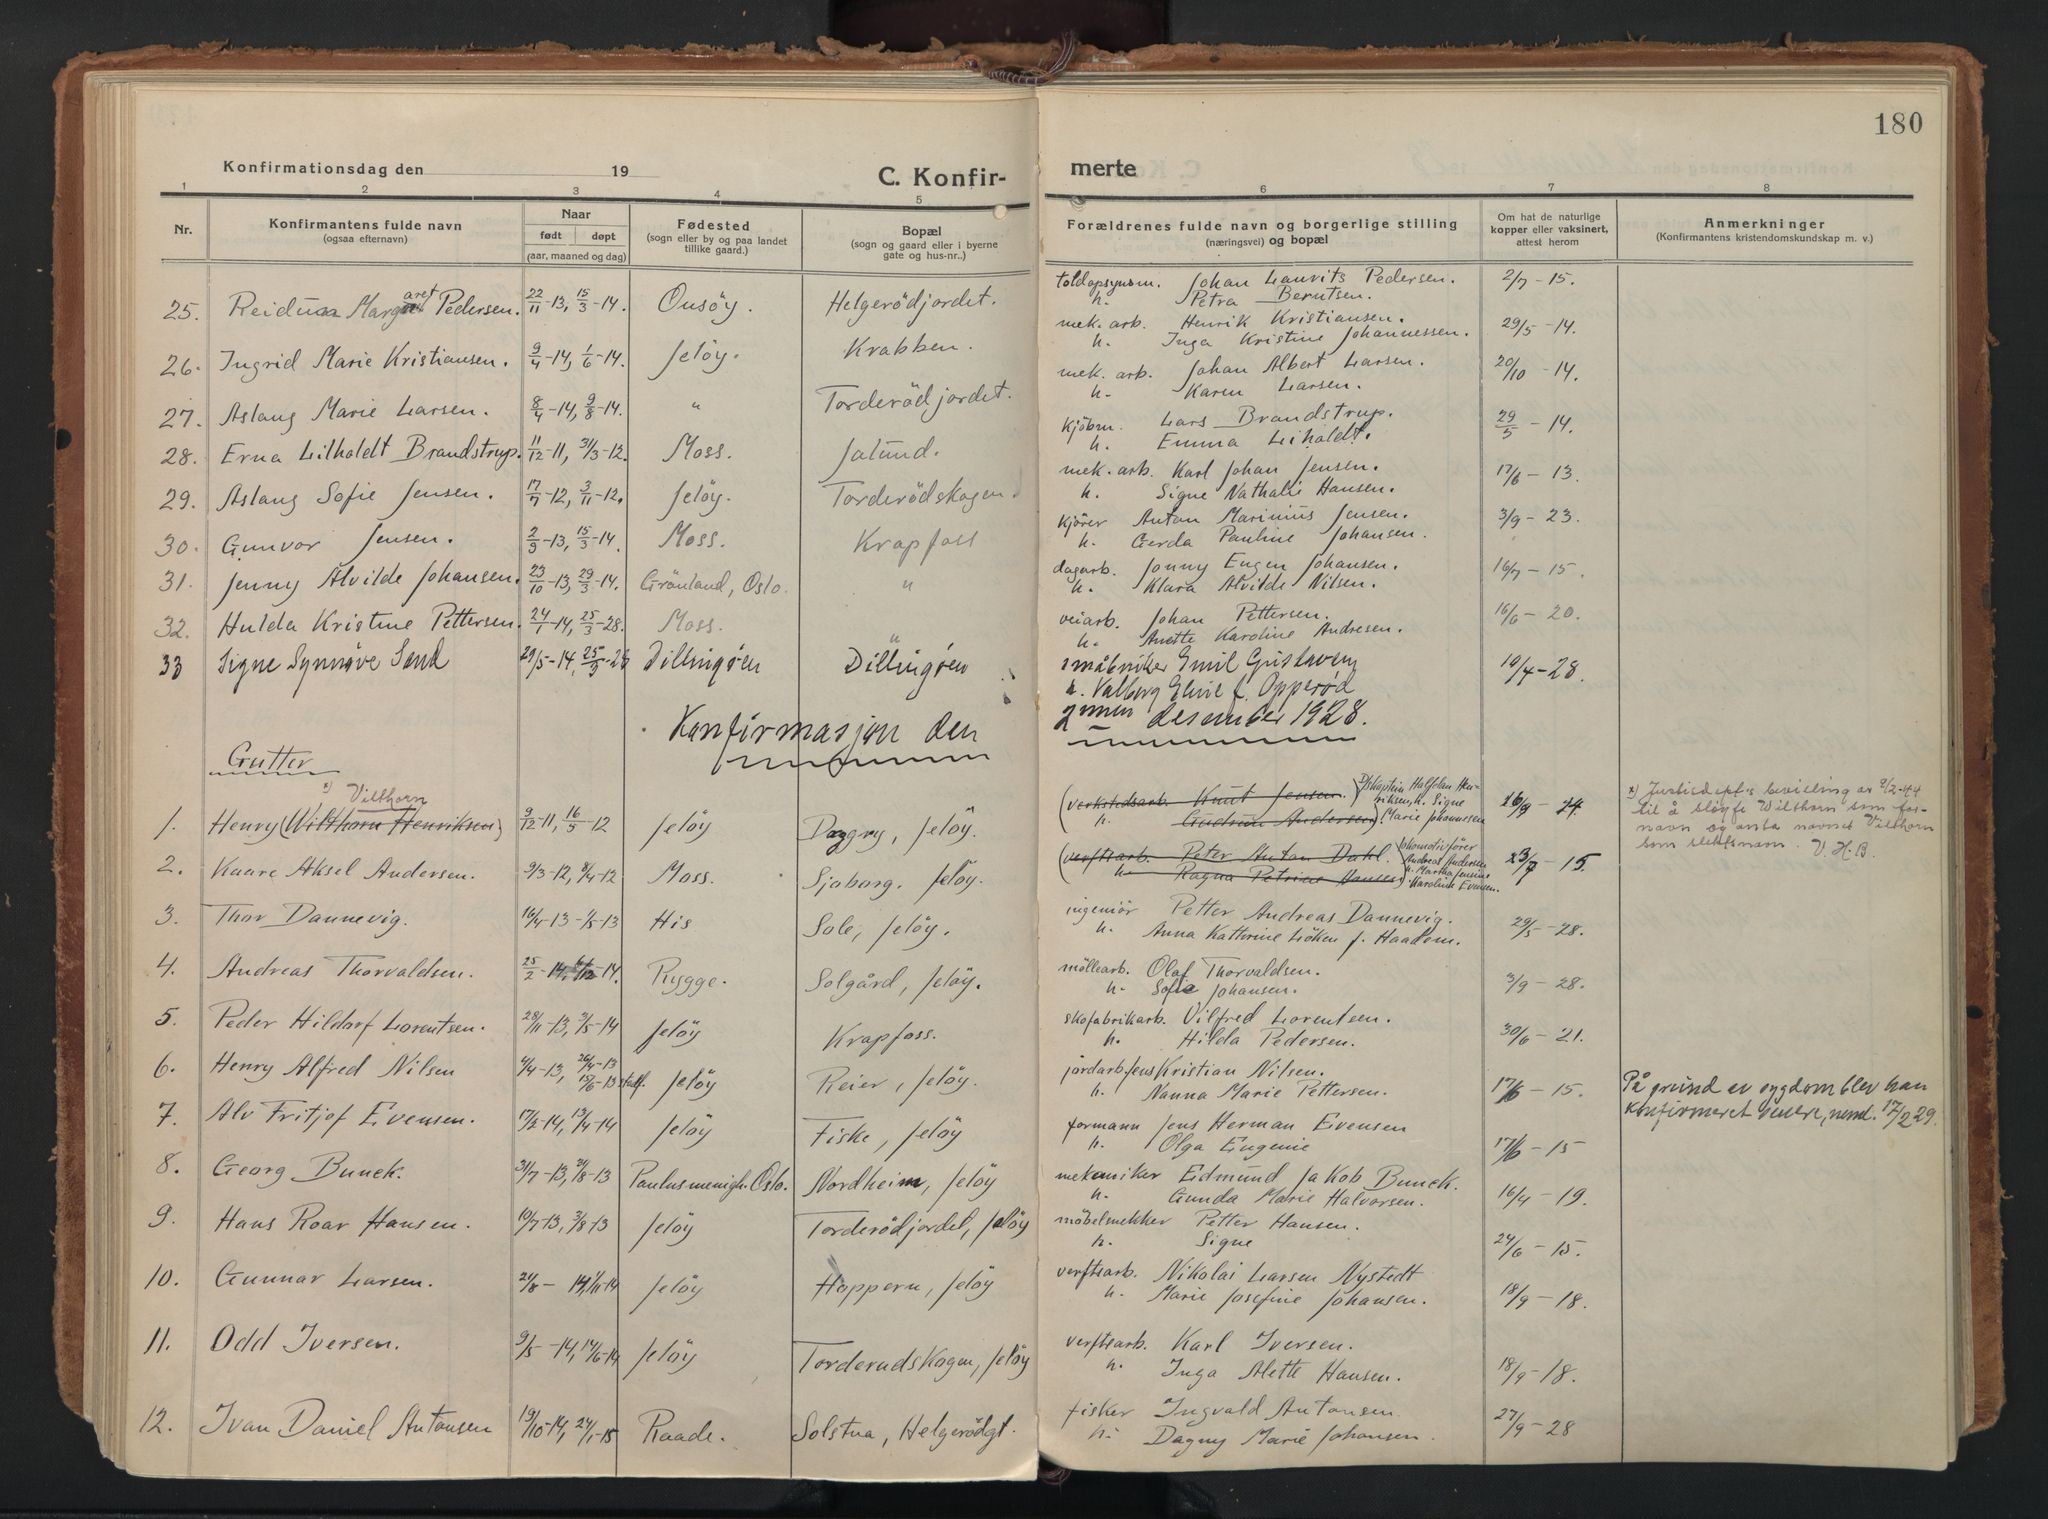 180
Konfirmationsdag den 19
C. Konfirmerte
1 2 3 4 5 6 7 8
Nr.
Konfirmantens fulde navn
(ogsaa efternavn)
Naar
født døpt
(aar, maaned og dag)
Fødested
(sogn eller by og paa landet
tillike gaard.)
Bopæl
(sogn og gaard eller i byerne
gate og hus-nr..)
Forældrenes fulde navn og borgerlige stilling
(næringsvei) og bopæl
Om hat de naturlige
kopper eller vaksinert,
attest herom
Anmerkninger
(Konfirmantens kristendomskundskap m. v.)
25. Reidun Margaret Pedersen. 22/11-13, 15/3-14. Onsöy. Helgerödjordet. toldopsynsm. Johan Lauvits Pedersen. 2/7-15.
h. Petra Berntsen.
26. Ingrid Marie Kristiansen. 9/4-14, 1/6-14. Jelöy. Krabben. mek. arb. Henrik Kristiansen. 29/5-14.
h. Inga Kristine Johannessen.
27. Aslaug Marie Larsen. 8/4-14, 9/8-14. " Torderödjordet. mek. arb. Johan Albert Larsen. 20/10-14.
h. Karen Larsen.
28. Erna Lilholdt Brandstrup. 11/12-11, 31/3-12. Moss. Jalund. kjöbm. Lars Brandstrup. 29/5-14.
h. Emma Liholdt.
29. Aslaug Sofie Jensen. 17/7-12, 3/11-12. Jelöy. Torderödskogen. mek. arb. Karl Johan Jensen. 17/6-13.
h. Signe Nathalie Hansen.
30. Gunvor Jensen. 2/9-13, 15/3-14. Moss. Krapfoss kjörer Anton Marinius Jensen. 3/9-23.
h. Gerda Pauline Johansen.
31. Jenny Alvilde Johansen. 23/10-13, 29/3-14. Grönland, Oslo. " dagarb. Jonny Eugen Johansen. 16/7-15.
h. Klara Alvilde Nilsen.
32. Hulda Kristine Pettersen. 24/1-14, 25/3-28. Moss. " veiarb. Johan Pettersen. 16/6-20.
h. Anette Karoline Andresen.
33 Signe Synnöve Sand 29/5-14, 25/3-28 Dillingøen Dillingøen småbruker Emil Gustavsen 10/4-28.
h. Valborg Eline f. Opperød
Konfirmasjon den 2nnen desember 1928.
Gutter
1. Henry (Wilthorn Henriksen) Vilthorn 9/12-11, 16/5-12 Jelöy Daggry, Jelöy. (verkstedsarb. Knut Jensen. 26/9-24.
h. Gudrun Andersen) Marie Johannesen
x) Justisdept's bevilling av 9/2-44
til å sløyfe Wilthorn som for-
navn og anta navnet Vilthorn
som slektsnavn. V.H.B.
2. Kaare Aksel Andersen. 9/3-12, 8/4-12 Moss. Sjöborg. Jelöy. (verftsarb. Peter Anton Dahl. lokomotivfører Andreas Andersen 23/7-15.
h. Ragna Petrine Hansen) h. Martha Karoline Evensen.
3. Thor Dannevig. 16/4-13 1/5-13 His Sole, Jelöy. ingeniör Petter Andreas Dannevig. 29/5-28.
h. Anna Kathrine Löken f. Haadem.
4. Andreas Thorvaldsen. 25/2-14, 6/12-14. Rygge. Solgård, Jelöy. möllearb. Olaf Thorvaldsen. 3/9-28.
h. Sofie Johansen.
5. Peder Hildorf Lorentsen. 28/11-13, 3/5-14 Jelöy Krapfoss. skofabrikarb. Vilfred Lorentsen. 30/6-21.
h. Hilda Pedersen.
6. Henry Alfred Nilsen 4/4-13, 26/4-13 15/6-13 stadf. Jelöy Reier, Jelöy. jordarb. Jens Kristian Nilsen. 17/6-15.
h. Nanna Marie Pettersen.
På grund av sygdom blev han
konfirmeret senere, neml. 17/2 29.
7. Alv Fritjof Evensen. 17/2-14, 13/4-14 Jelöy Fiske, Jelöy formann Jens Herman Evensen 17/6-15
h. Olga Eugenie
8. Georg Bunek. 31/7-13, 24/8-13 Paulusmenigh. Oslo. Nordheim, Jelöy mekaniker Edmund Jakob Bunek. 16/4-19.
h. Gunda Marie Halvorsen.
9. Hans Roar Hansen. 10/7-13, 3/8-13 Jelöy Torderödjordet, Jelöy möbelsnekker Petter Hansen. 24/6-15.
h. Signe
10. Gunnar Larsen. 21/8-14, 1/11-14 Jelöy Hoppern, Jelöy verftsarb. Nikolai Larsen Nystedt 18/9-18.
h. Marie Josefine Johansen.
11. Odd Iversen. 9/5-14, 14/6-14 Jelöy Torderudskogen, Jelöy verftsarb. Karl Iversen. 18/9-18.
h. Inga Alette Hansen.
12. Ivan Daniel Antonsen 19/10-14, 24/1-15 Raade. Solstua, Helgerödgt. fisker Ingvald Antonsen 27/9-28
h. Dagny Marie Johansen.